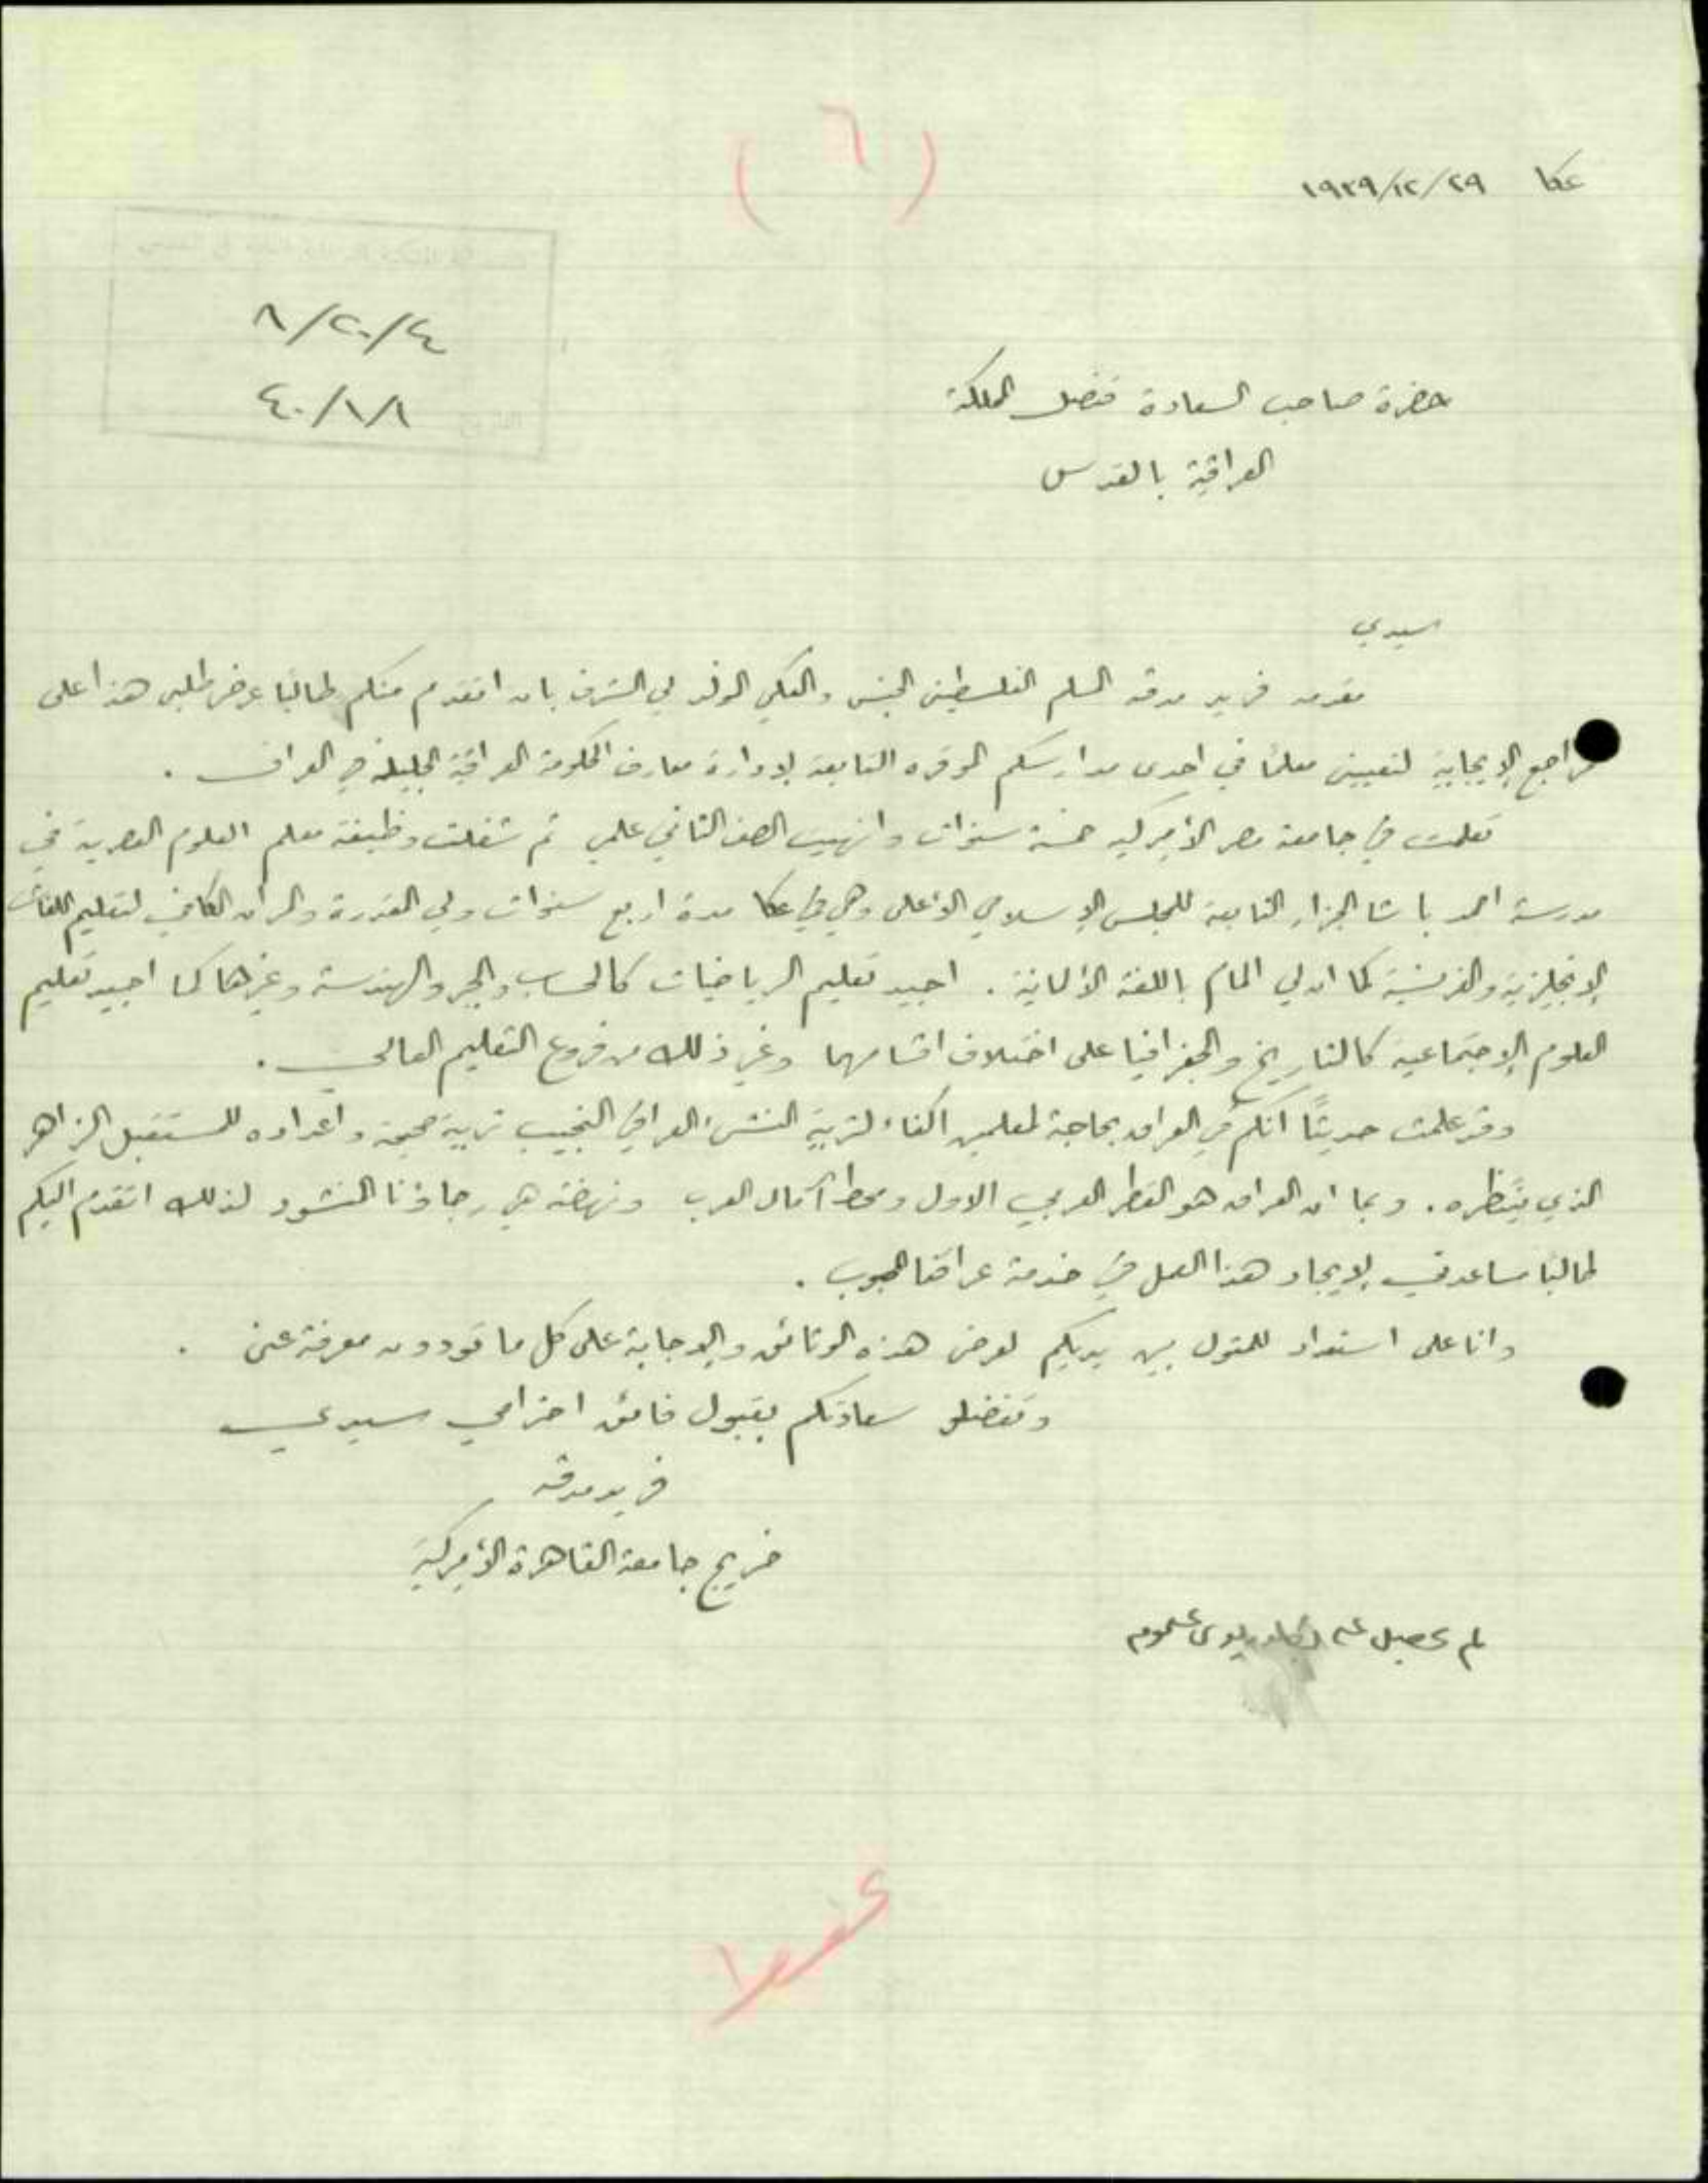 (٦)
عكا ٢٩/١٢/١٩٣٩
٨/٢٠/٤
٤٠/١/٨
حضرة صاحب السعادة قنصل المملكة
العراقية بالقدس
سيدي
مقدمه فريد مدقه المسلم الفلسطيني الجنس والعكي المولد لي الشرف بان اتقدم منكم طالبًا عرض طلبي هذا على
مراجع الإيجابية لتعييني معلمًا في احدى مدارسكم الموقره التابعة لإدارة معارف الحكومة العراقية الجليلة في العراق .
تعلمت في جامعة مصر الأميركيه خمسة سنوات وانهيت الصف الثاني علمي ثم شغلت وظيفة معلم العلوم العصرية في
مدرسة احمد باشا الجزار التابعة للمجلس الإسلامي الأعلى وهي في عكا مدة اربع سنوات ولي القدرة والمران الكافي لتعليم اللغات
الإنجليزية والفرنسية كما ان لي المام باللغة الألمانية . اجيد تعليم الرياضيات كالحساب والجبر والهندسة وغيرها كما اجيد تعليم
العلوم الإجتماعية كالتاريخ والجغرافيا على اختلاف اقسامهما وغير ذلك من فروع التعليم العالي .
وقد علمت حديثًا انكم في العراق بحاجة لمعلمين اكفاء لتربية النشىء العراقي النجيب تربية صحيحة واعداده للمستقبل الزاهر
الذي ينتظره . وبما ان العراق هو القطر العربي الاول ومحط آمال العرب ونهضته هي رجاؤنا المنشود لذلك اتقدم اليكم
طالبًا مساعدتي لإيجاد هذا العمل في خدمة عراقنا المحبوب .
وانا على استعداد للمثول بين يديكم لعرض هذه الوثائق والإجابة على كل ما تودون معرفته عني .
وتفضلو سعادتكم بقبول فائق احترامي سيدي
فريد مدقه
خريج جامعة القاهرة الأميركية
لم يحصل على بكلوريوس علوم